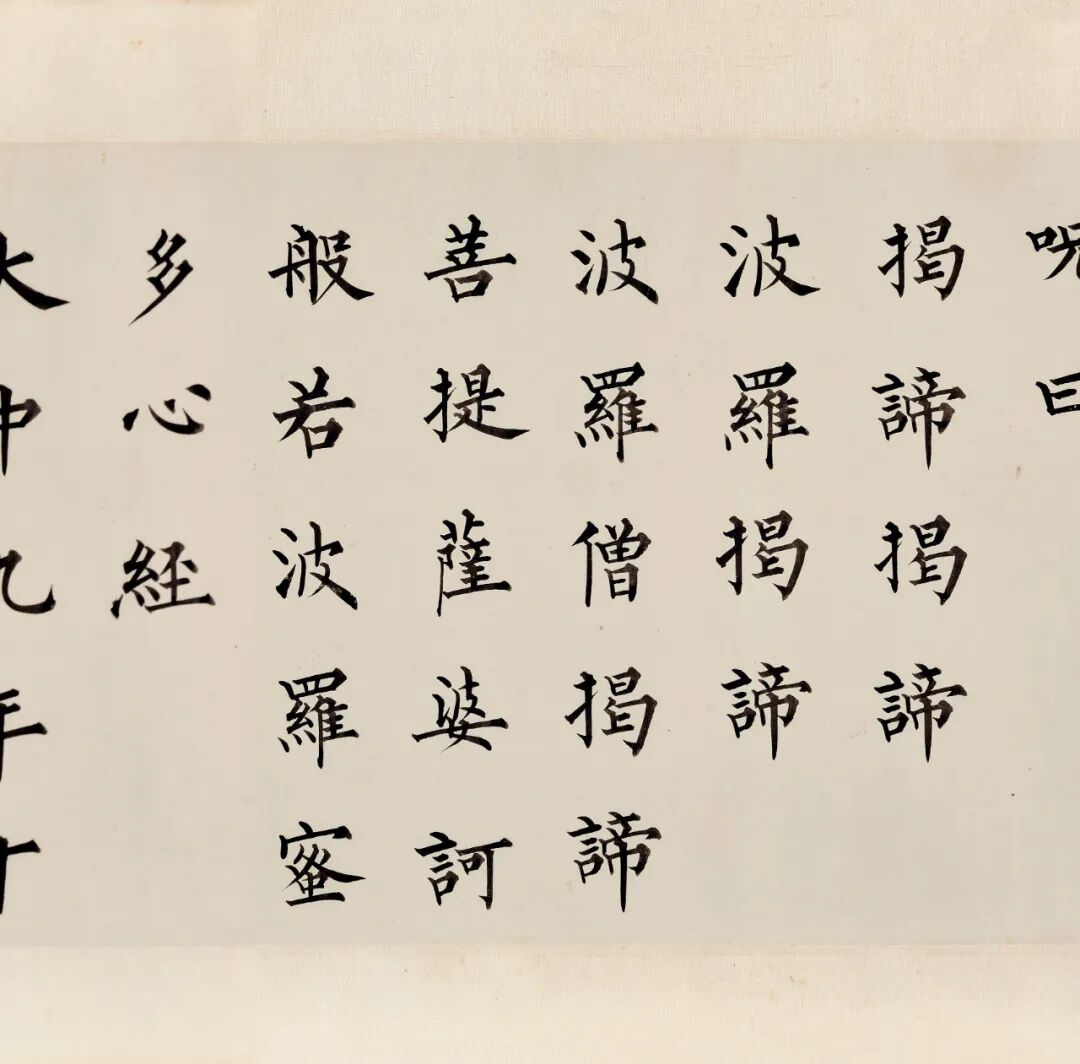 呪曰
揭諦揭諦
波羅揭諦
波羅僧揭諦
菩提薩婆訶
般若波羅蜜
多心經
大中九年十